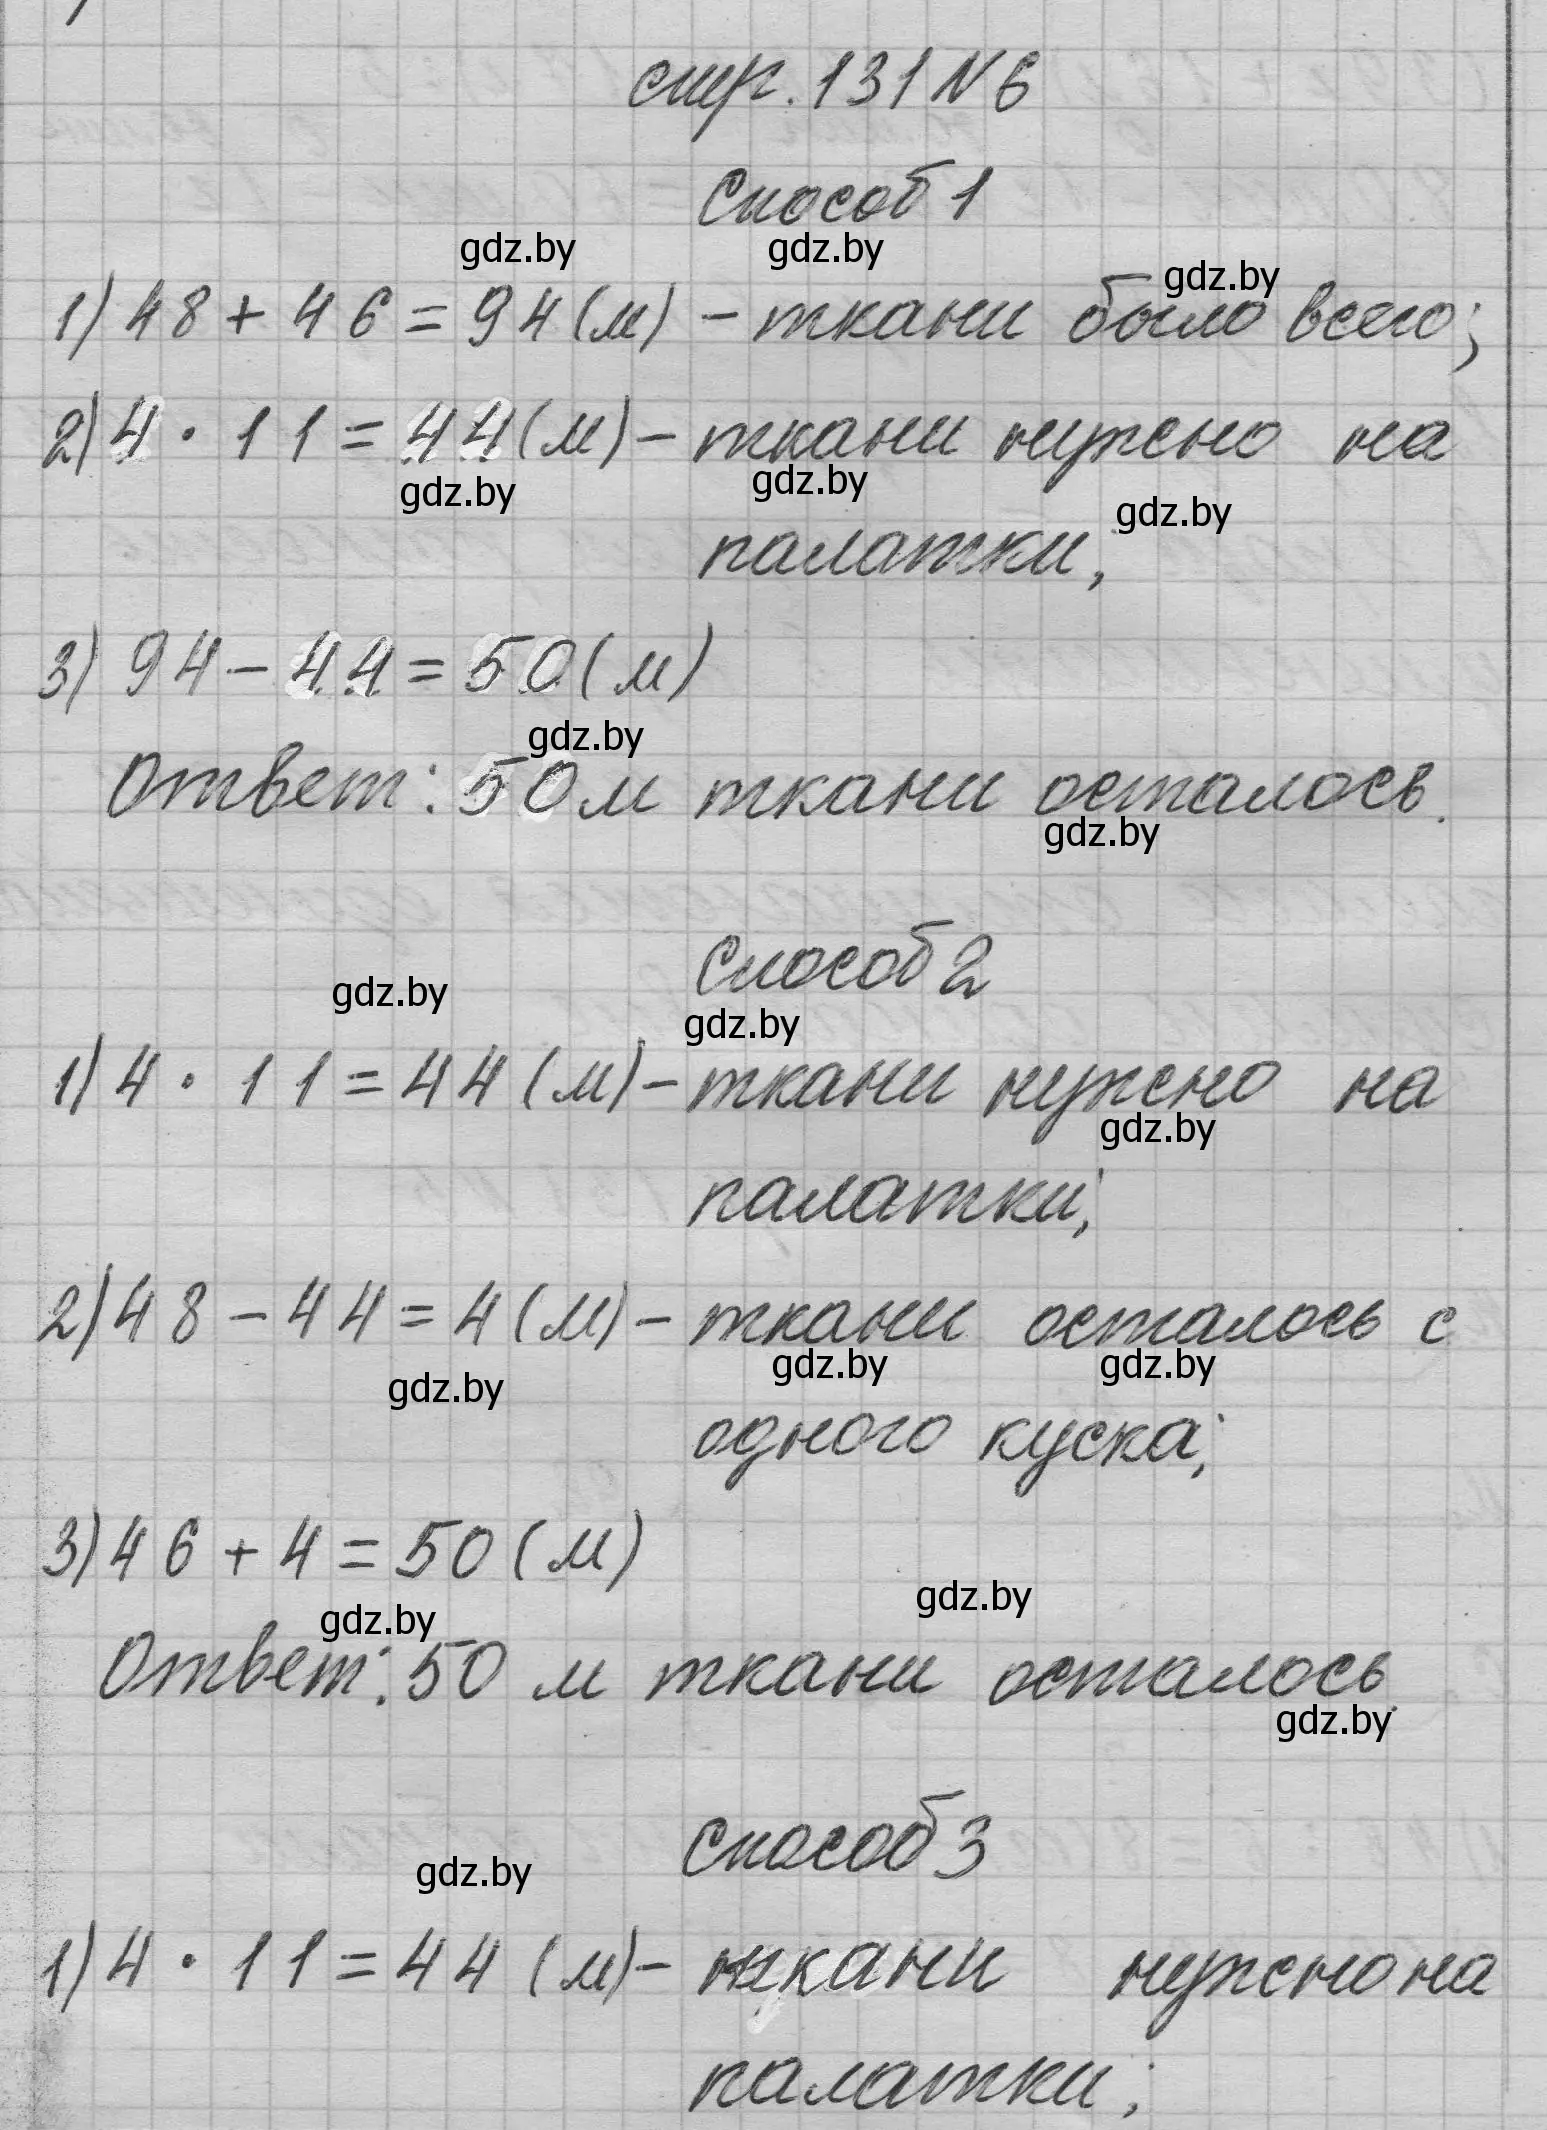 стр. 131 N 6
Способ 1
gdz.by gdz.by gdz.by
1) 48 + 46 = 94 (м) - ткани было всего;
2) 4 · 11 = 44 (м) - ткани нужно на
gdz.by gdz.by gdz.by
палатки;
3) 94 - 44 = 50 (м)
gdz.by
Ответ: 50 м ткани осталось.
gdz.by
Способ 2
gdz.by gdz.by
1) 4 · 11 = 44 (м) - ткани нужно на
gdz.by
палатки;
2) 48 - 44 = 4 (м) - ткани осталось с
gdz.by gdz.by gdz.by
одного куска;
3) 46 + 4 = 50 (м)
gdz.by gdz.by
Ответ: 50 м ткани осталось.
gdz.by
Способ 3
gdz.by
1) 4 · 11 = 44 (м) - ткани нужно на
палатки;